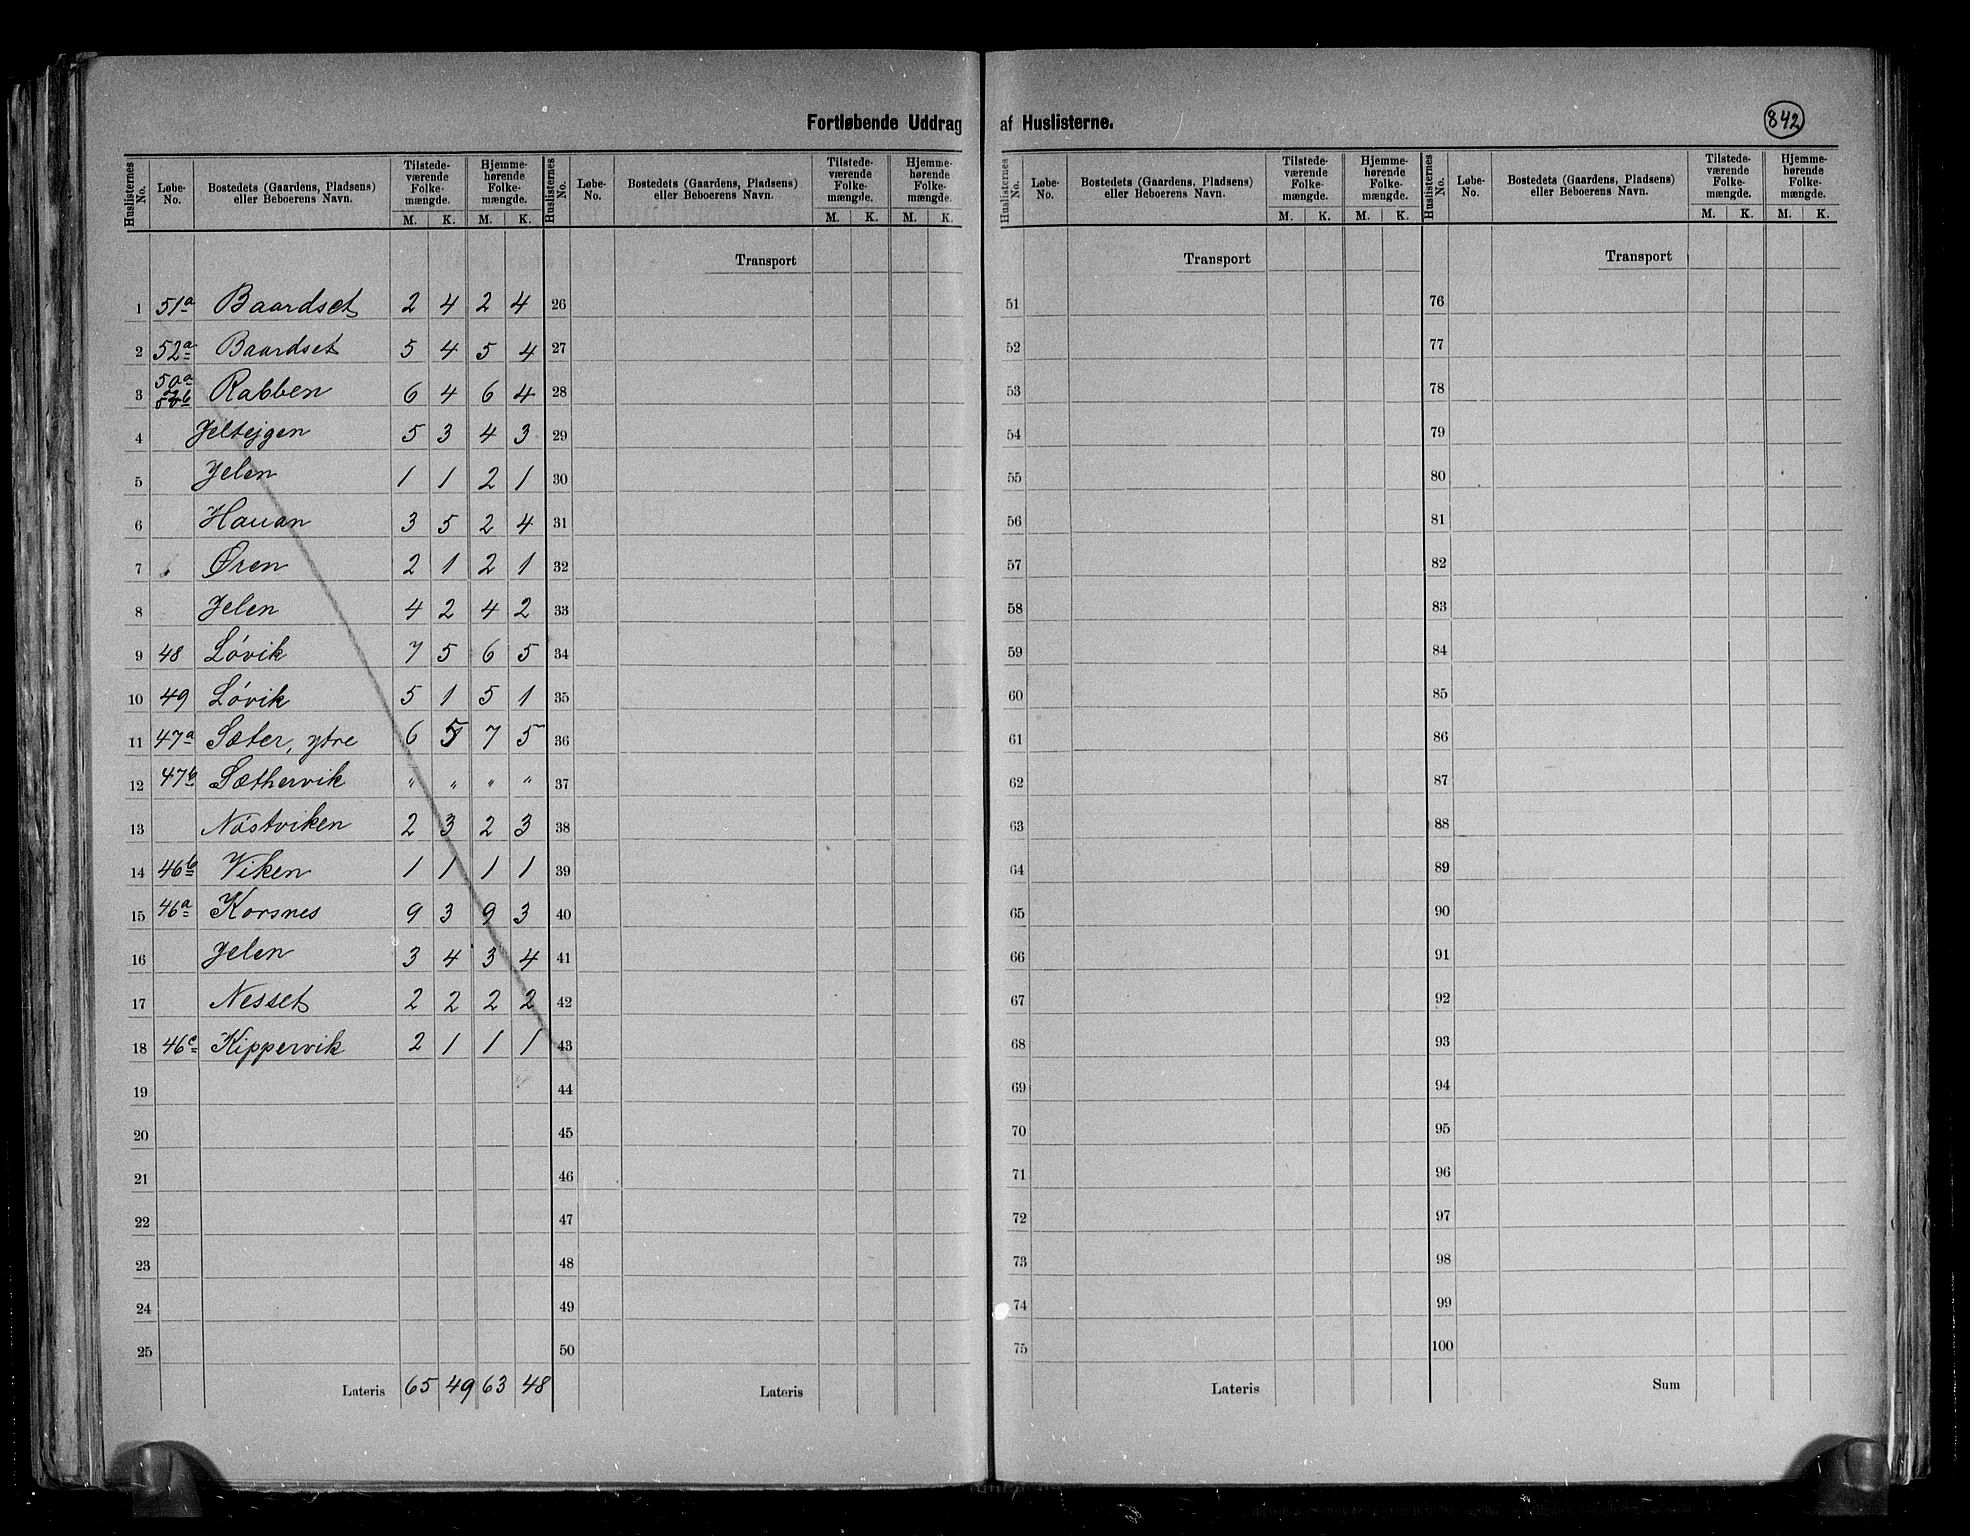 Fortløbende Uddrag af Huslisterne.
842
Huslisternes No. Løbe-No. Bostedets (Gaardens, Pladsens) eller Beboerens Navn. Tilstedeværende Folkemængde. M. K. Hjemmehørende Folkemængde. M. K.
Huslisternes No. Løbe-No. Bostedets (Gaardens, Pladsens) eller Beboerens Navn. Tilstedeværende Folkemængde. M. K. Hjemmehørende Folkemængde. M. K.
Huslisternes No. Løbe-No. Bostedets (Gaardens, Pladsens) eller Beboerens Navn. Tilstedeværende Folkemængde. M. K. Hjemmehørende Folkemængde. M. K.
Huslisternes No. Løbe-No. Bostedets (Gaardens, Pladsens) eller Beboerens Navn. Tilstedeværende Folkemængde. M. K. Hjemmehørende Folkemængde. M. K.
Transport Transport Transport
1 51a Baardset 2 4 2 4 26 51 76
2 52a Baardset 5 4 5 4 27 52 77
3 50a Rabben 6 4 6 4 28 53 78
4 Jelteigen 5 3 4 3 29 54 79
5 Jelen 1 1 2 1 30 55 80
6 Hauan 3 5 2 4 31 56 81
7 Øren 2 1 2 1 32 57 82
8 Jelen 4 2 4 2 33 58 83
9 48 Løvik 7 5 6 5 34 59 84
10 49 Løvik 5 1 5 1 35 60 85
11 47a Sæter, ytre 6 5 7 5 36 61 86
12 47b Sæthervik " " " " 37 62 87
13 Nøstviken 2 3 2 3 38 63 88
14 46b Viken 1 1 1 1 39 64 89
15 46a Korsnes 9 3 9 3 40 65 90
16 Jelen 3 4 3 4 41 66 91
17 Nesset 2 2 2 2 42 67 92
18 46c Kippervik 2 1 1 1 43 68 93
19 44 69 94
20 45 70 95
21 46 71 96
22 47 72 97
23 48 73 98
24 49 74 99
25 50 75 100
Lateris 65 49 63 48 Lateris Lateris Sum